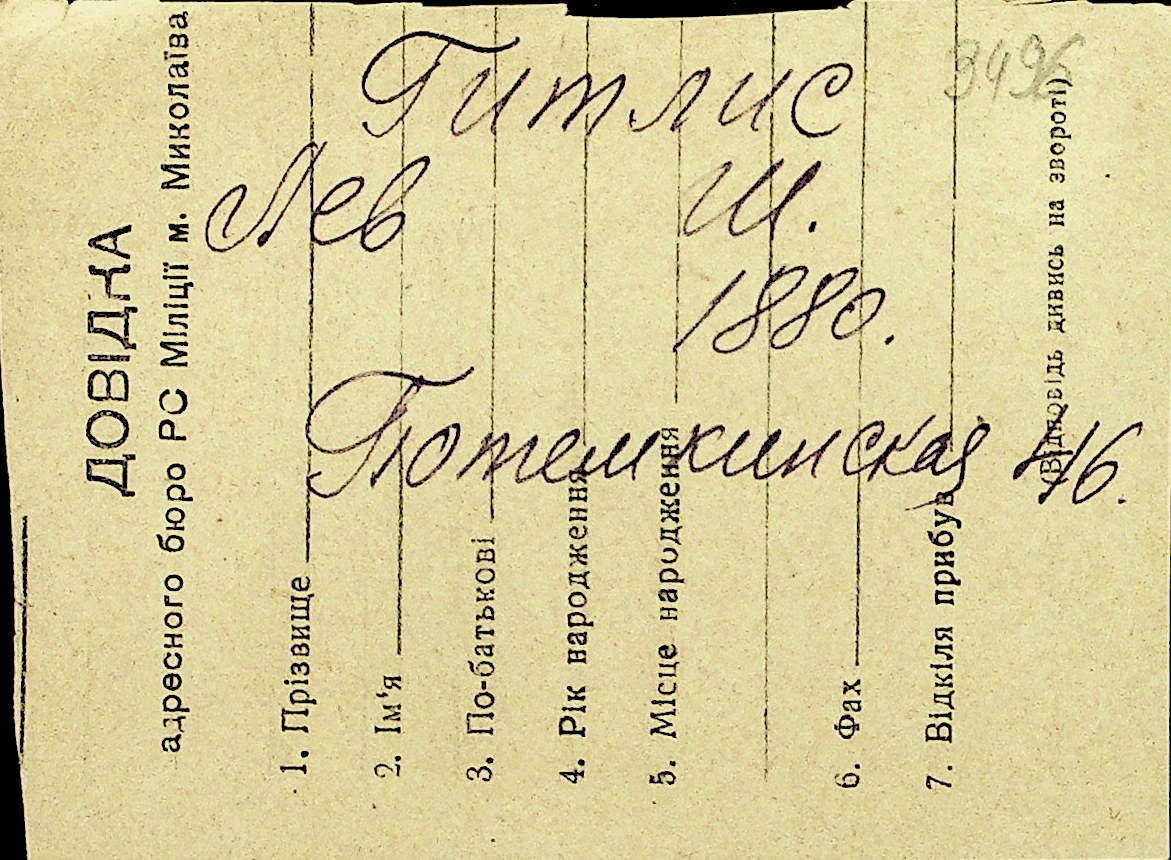 ДОВІДКА
адресного бюро РС Міліції м. Миколаїва
1. Прізвище
2. Ім'я
3. По-батькові
4. Рік народження
5. Місце народження
6. Фах
7. Відкіля прибув
(Відповідь дивись на звороті)
3496
Гитлис
Лев Ш.
1880.
Потемкинская 46.